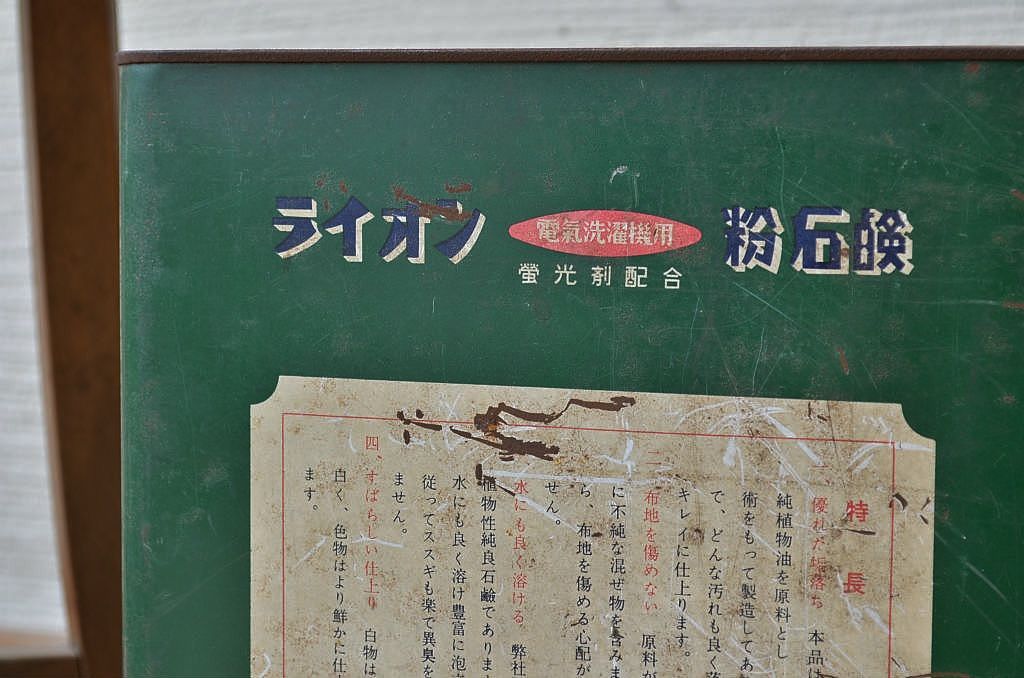 ライオン 電氣洗濯機用 粉石鹸
螢光剤配合
特長
一、優れた垢落ち 本品は
純植物油を原料とし
術をもって製造してあ
で、どんな汚れも良く落
キレイに仕上ります。
二、布地を傷めない 原料が
に不純な混ぜ物を含みま
ら、布地を傷める心配が
せん。
水にも良く溶ける。 弊社
植物性純良石鹼でありま
水にも良く溶け豊富に泡
従ってススギも楽で異臭を
ません。
四、すばらしい仕上り 白物は
白く、色物はより鮮かに仕
ます。